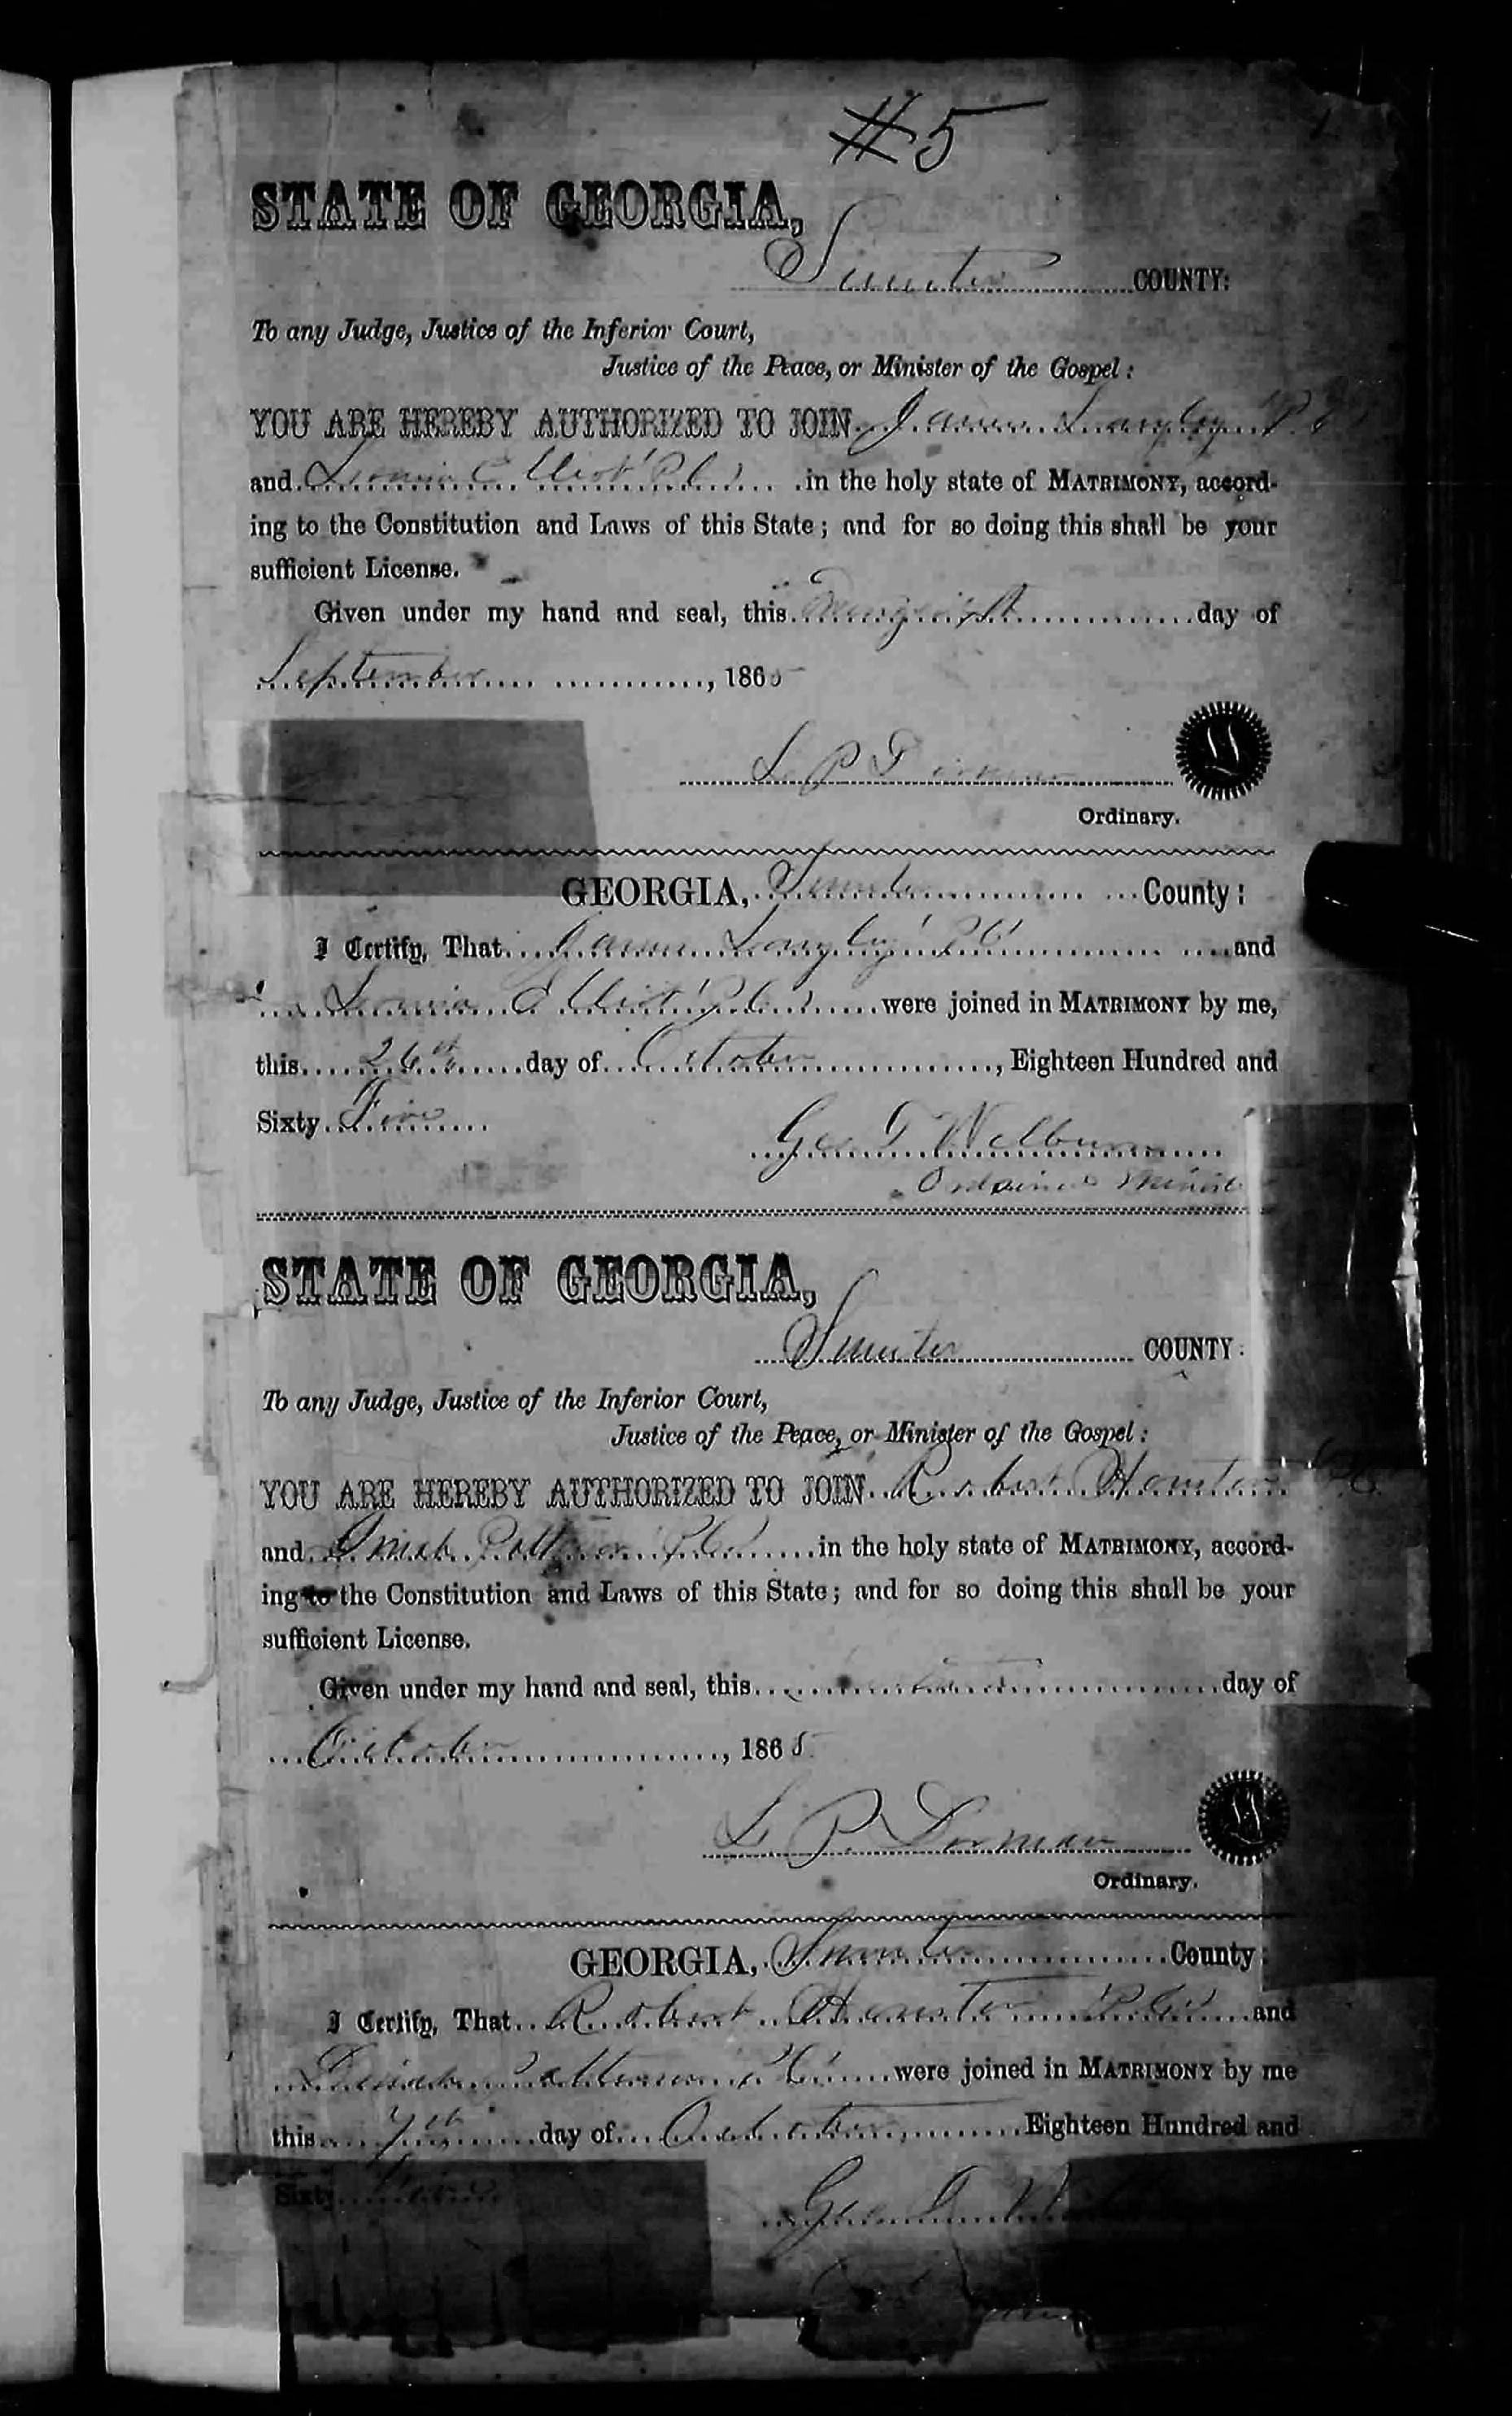 #5
STATE OF GEORGIA,
Sumter COUNTY:
To any Judge, Justice of the Inferior Court,
Justice of the Peace, or Minister of the Gospel:
YOU ARE HEREBY AUTHORIZED TO JOIN
and in the holy state of MATRIMONY, accord-
ing to the Constitution and Laws of this State; and for so doing this shall be your
sufficient License.
Given under my hand and seal, this day of
September, 1865
L P Dorman
Ordinary.
GEORGIA, Sumter County:
I Certify, That and
were joined in MATRIMONY by me,
this 26th day of October, Eighteen Hundred and
Sixty Five
Geo T Wilburn
Ordained Minist
STATE OF GEORGIA,
Sumter COUNTY:
To any Judge, Justice of the Inferior Court,
Justice of the Peace, or Minister of the Gospel:
YOU ARE HEREBY AUTHORIZED TO JOIN Robert
and in the holy state of MATRIMONY, accord-
ing to the Constitution and Laws of this State; and for so doing this shall be your
sufficient License.
Given under my hand and seal, this day of
October, 1865
L. P. Dorman
Ordinary.
GEORGIA, Sumter County:
I Certify, That Robert and
were joined in MATRIMONY by me
this 7th day of October, Eighteen Hundred and
Sixty Five
Geo T